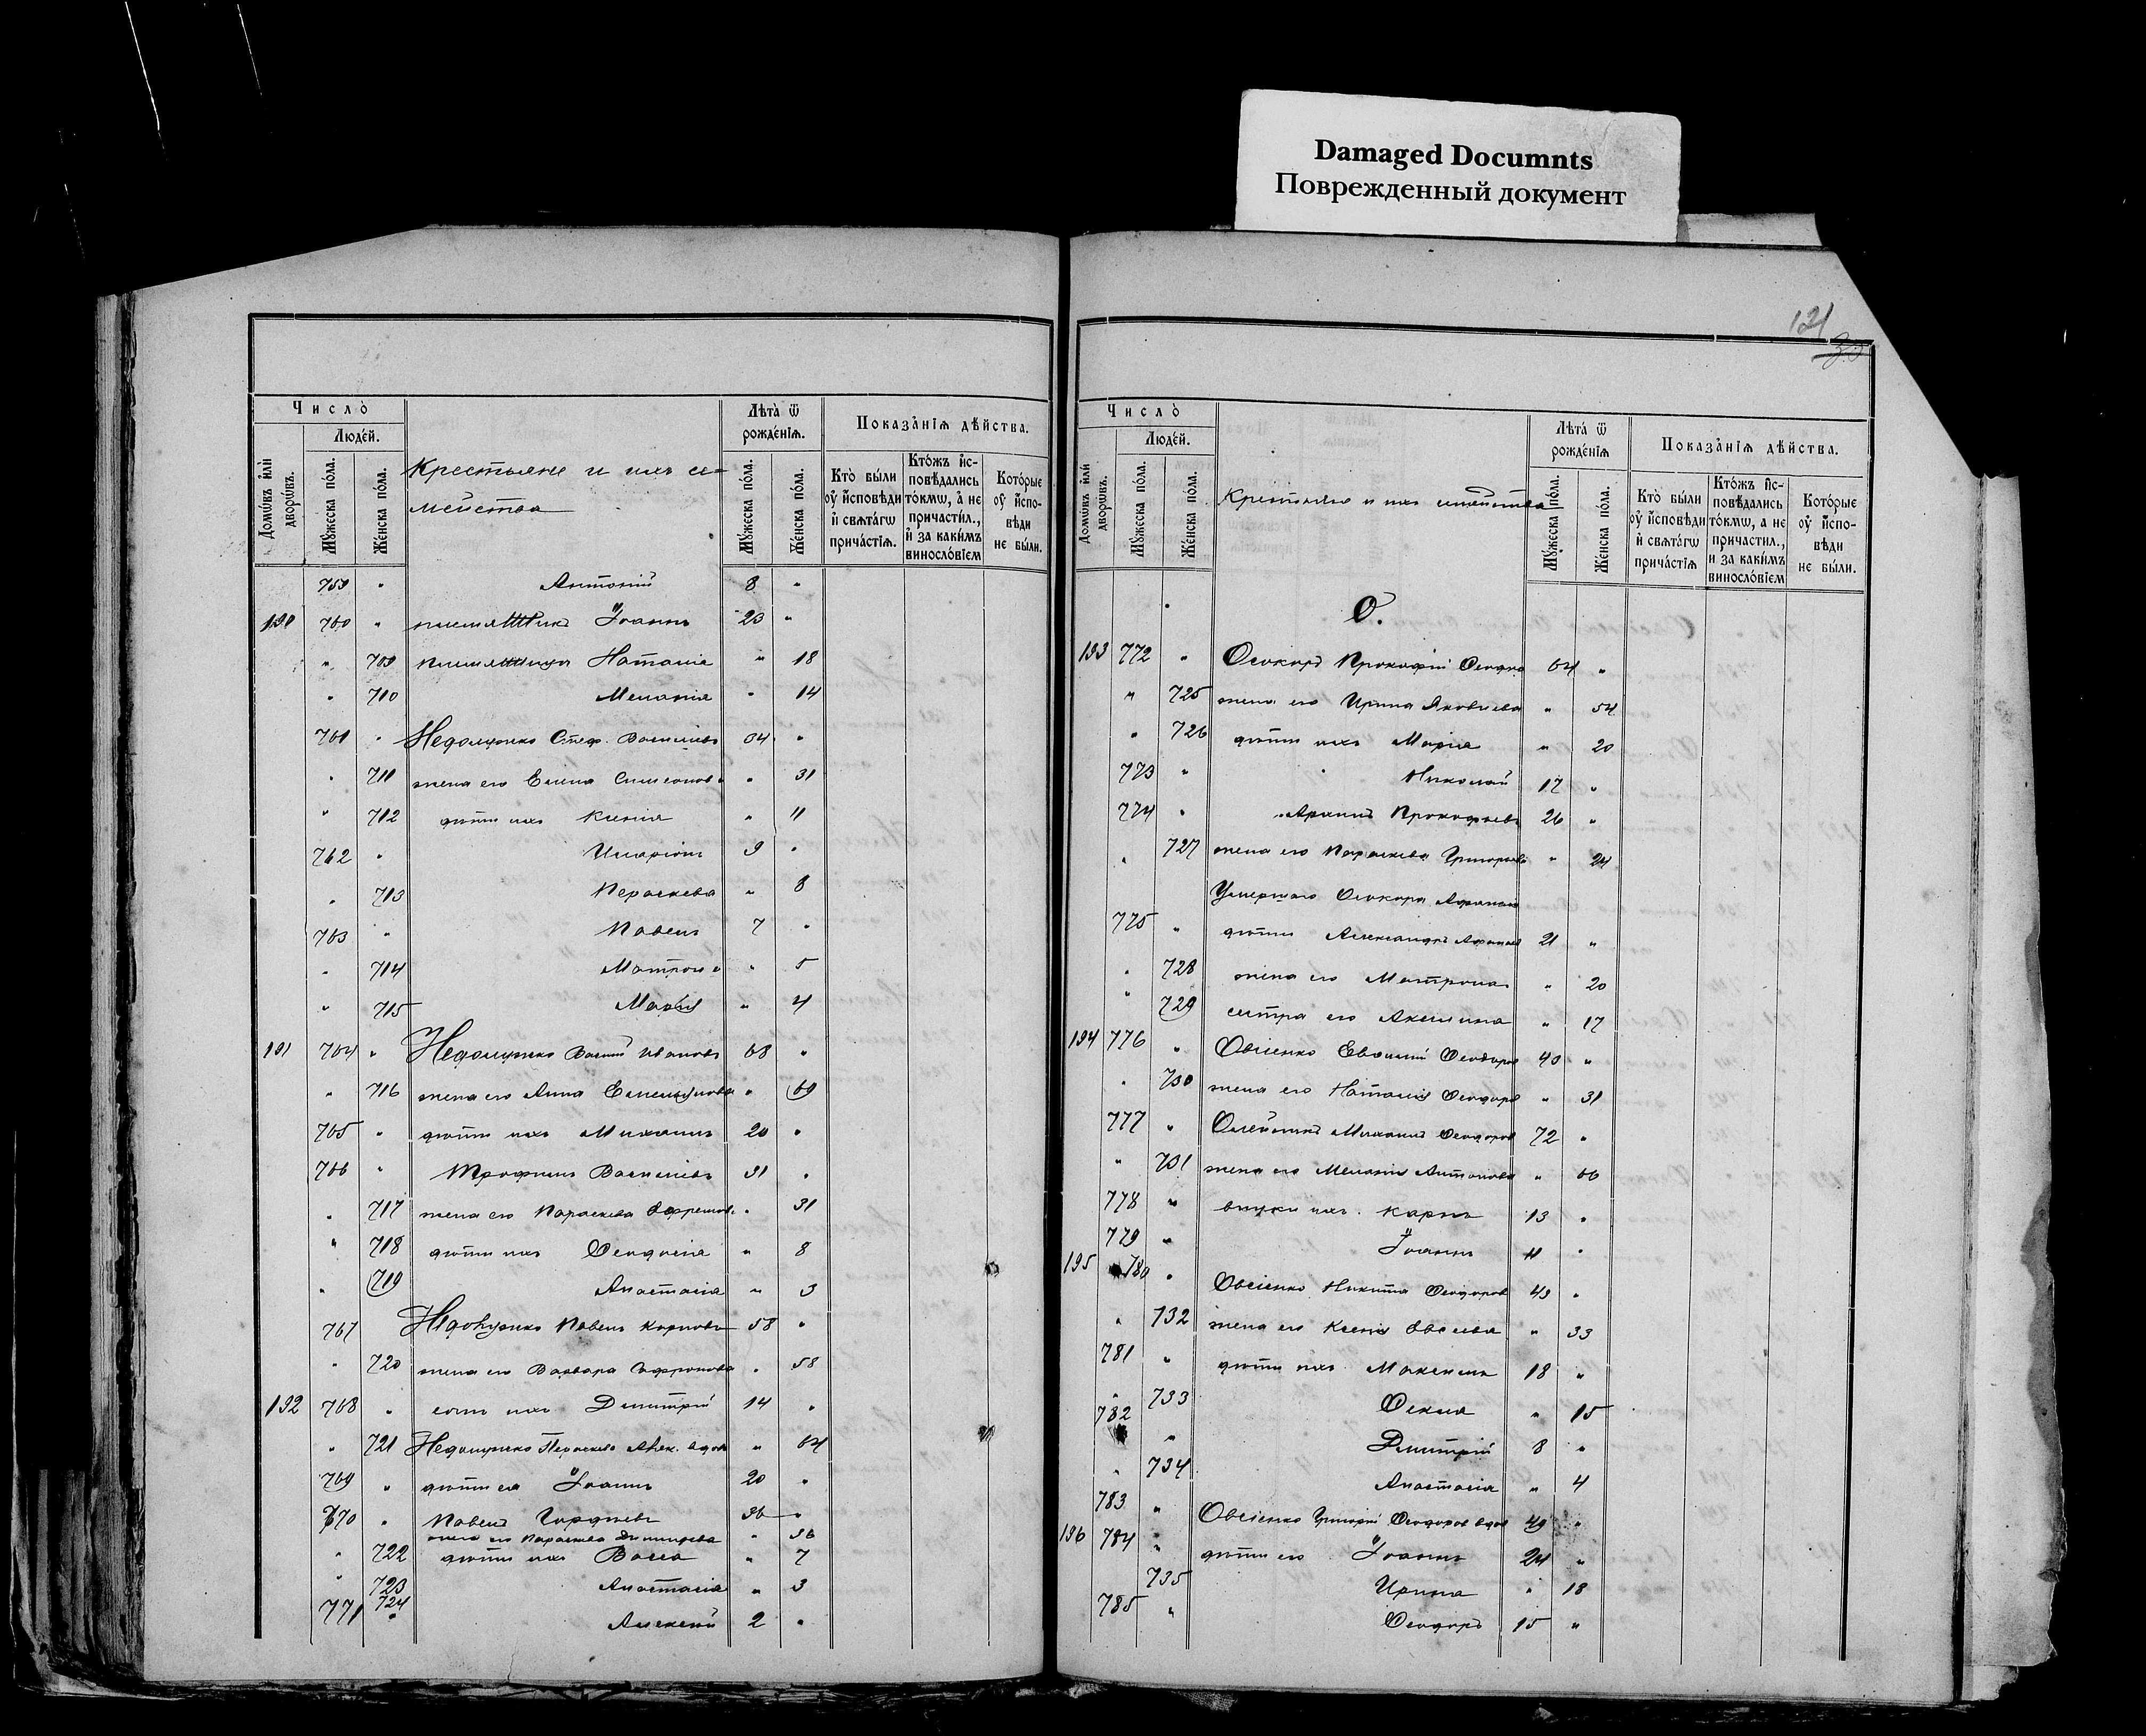 Damaged Documnts
Поврежденный документ
Число̀
Люде́й.
Домѡ́въ и҆лѝ дворѡ́въ.
Мꙋ́жеска по́ла.
Же́нска по́ла.
Крестьяне и ихъ се-
мейства
Лѣта̀ ѿ рожде́нїѧ.
Мꙋ́жеска по́ла.
Же́нска по́ла.
Показа́нїѧ дѣ́йства.
Кто̀ бы́ли оу҆ и҆́сповѣди и҆ свѧта́гѡ прича́стїѧ.
Кто́жъ и҆спо­вѣдались то́кмѡ, а҆ не причасти́л., и҆ за каки́мъ винословіем
Кото́рые оу҆ и҆́сповѣди не бы́ли.
759 " Антоній 8 "
190 760 " племянникъ Іоаннъ 23 "
" 709 племянница Наталія " 18
" 710 Меланія " 14
761 " Недолужко Стеф. Васильевъ 34 "
" 711 жена его Елена Симеонова " 31
" 712 дѣти ихъ Ксенія " 11
762 " Иларіонъ 9 "
" 713 Параскева " 8
763 " Павелъ 7 "
" 714 Матрона " 5
" 715 Марія " 4
191 764 " Недолужко Василій Ивановъ 68 "
" 716 жена его Анна Емельянова " 69
765 " дѣти ихъ Михаилъ 20 "
766 " Трофимъ Васильевъ 31 "
" 717 жена его Параскева " 31
" 718 дѣти ихъ Ѳеодосія " 8
" 719 Анастасія " 3
767 Недолужко Павелъ Карповъ 58 "
" 720 жена его Варвара " 58
192 768 " сынъ ихъ Димитрій 14 "
" 721 Недолужко Параскева Алек. вдова " 64
769 " дѣти ея Іоаннъ 20 "
770 " Павелъ Гордѣевъ 36 "
жена его Параскева " 36
" 722 дѣти ихъ Васса " 7
" 723 Анастасія " 3
724
771 " Алексій 2 "
121
Число̀
Люде́й.
Домѡ́въ и҆лѝ дворѡ́въ.
Мꙋ́жеска по́ла.
Же́нска по́ла.
Крестьяне и ихъ семейства
Лѣта̀ ѿ рожде́нїѧ
Мꙋ́жеска по́ла.
Же́нска по́ла.
Показа́нїѧ дѣ́йства.
Кто̀ бы́ли оу҆ и҆́сповѣди и҆ свѧта́гѡ прича́стїѧ
Кто́жъ и҆спо­вѣдались то́кмѡ, а не причастил., и за каки́мъ винословіем
Кото́рые оу҆ и҆́сповѣди не бы́ли.
О.
193 772 " Осокоръ Прокофій 64 "
" 725 жена его Ирина Яковлева " 54
" 726 дѣти ихъ Марія " 20
773 " Николай 17 "
774 " Прокофьевъ 26 "
" 727 жена его Параскева Григорьева " 24
Умершаго Осокора
775 " дѣти Александръ 21 "
" 728 жена его Матрона " 20
" 729 сестра его Акилина " 17
194 776 " Овсіенко Евѳимій Ѳеодоров 40 "
" 730 жена его Наталія Ѳеодоров " 31
777 " Олейникъ Михаилъ Ѳеодоров 72 "
" 731 жена его Меланія Антонова " 66
778 " внуки ихъ Карпъ 13 "
779 " Іоаннъ 11 "
195 780 " Овсіенко Никита Ѳеодоров 43 "
" 732 жена его Ксенія " 33
781 " дѣти ихъ Максимъ 18 "
" 733 Ѳекла " 15
782 " Димитрій 8 "
" 734 Анастасія " 4
783 " Овсіенко Григорій Ѳеодоров вдов 49 "
196 784 " дѣти его Іоаннъ 24 "
735 Ирина " 18
785 " Ѳеодоръ 15 "